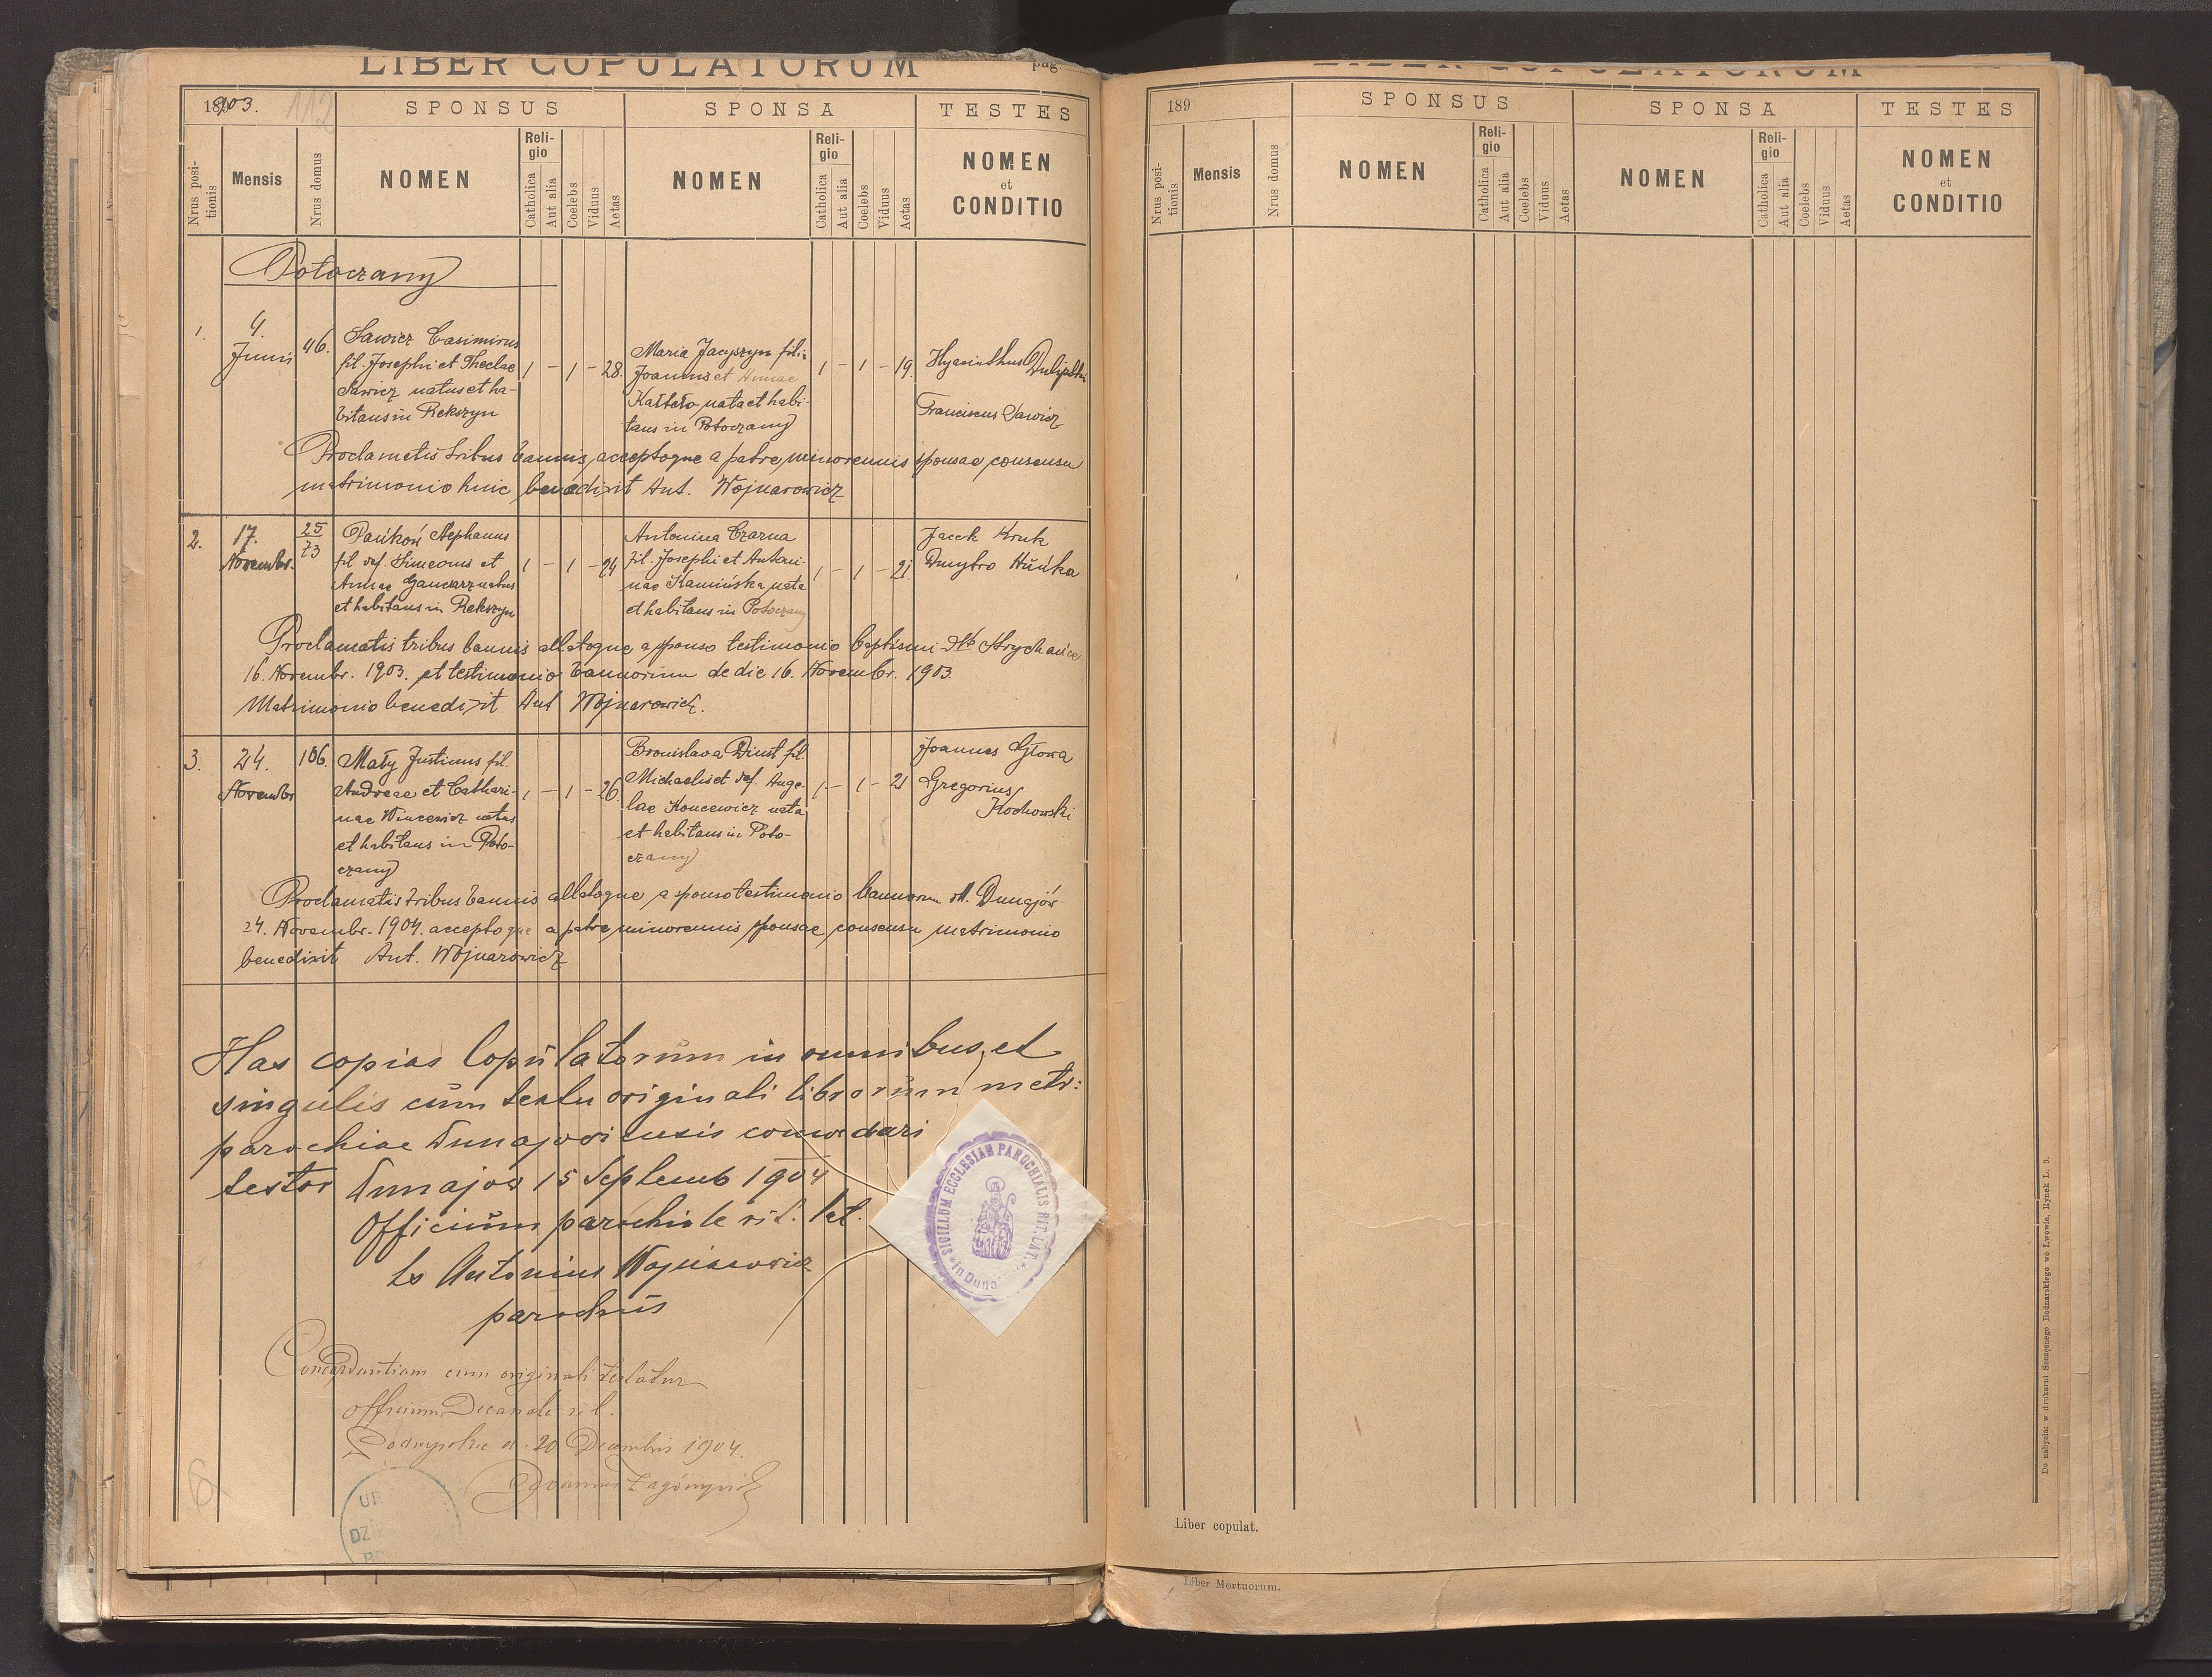 LIBER COPULATORUM
pag.
1903.
112
SPONSUS
SPONSA
TESTES
Nrus positionis
Mensis
Nrus domus
NOMEN
Religio
Catholica
Aut alia
Coelebs
Viduus
Aetas
NOMEN
Religio
Catholica
Aut alia
Coelebs
Viduus
Aetas
NOMEN
et
CONDITIO
Potoczany
1.
4.
Junii
46.
Sawicz Casimirus
fil. Josephi et Theclae
Sawicz natus et ha-
bitans in Rekszyn
1 - 1 - 28.
Maria Jacyszyn filia
Joannis et Annae
nata et habi-
tans in Potoczany
1 - 1 - 19.
Hyacinthus
Franciscus Sawicz
Proclamatis tribus bannis, acceptoque a patre minorennis sponsae consensu
matrimonio huic benedixit Ant. Wojnarowicz
2.
17.
Novembr.
25
73
Pańków Stephanus
fil. def. Simeonis et
Annae Gancarz natus
et habitans in Rekszyn
1 - 1 - 24
Antonina Czarna
fil. Josephi et Antoni-
nae Kamińska nata
et habitans in Potoczany
1 - 1 - 21.
Jacek Kruk
Dmytro Hüńka
Proclamatis tribus bannis allatoque a sponso testimonio baptismi
16. Novembr. 1903. et testimonio bannorum de die 16. Novembr. 1903.
Matrimonio benedixit Ant Wojnarowicz.
3.
24.
Novembr
106.
Mały Justinus fil.
Andreae et Cathari-
nae Wincewicz natus
et habitans in Poto-
czany
1 - 1 - 26.
Bronislava Dinst fil.
Michaelis et def. Ange-
lae Koncewicz nata
et habitans in Poto-
czany
1 - 1 - 21
Joannes Głowa
Gregorius
Kochowski
Proclamatis tribus bannis allatoque a sponso testimonio bannorum Dunajów
24. Novembr. 1904. acceptoque a patre minorennis sponsae consensu matrimonio
benedixit Ant. Wojnarowicz
Has copias Copulatorum in omnibus et
singulis cum textu originali librorum metr:
parochiae Dunajoviensis concordari
testor Dunajow 15 Septemb 1904
Officium parochiale rit. lat.
Antonius Wojnarowicz
parochus
SIGILLUM ECCLESIAE PAROCHIALIS RIT. LAT.
in Duna
Concordantiam cum originali testatur
Officium Decanale r. l.
d. 20 Decembris 1904.
Joannes
UR
DZI
LIBER COPULATORUM
189
SPONSUS
SPONSA
TESTES
Nrus positionis
Mensis
Nrus domus
NOMEN
Religio
Catholica
Aut alia
Coelebs
Viduus
Aetas
NOMEN
Religio
Catholica
Aut alia
Coelebs
Viduus
Aetas
NOMEN
et
CONDITIO
Do nabycia: w drukarni Szczęsnego Bednarskiego we Lwowie, Rynek L. 9.
Liber copulat.
Liber Mortuorum.